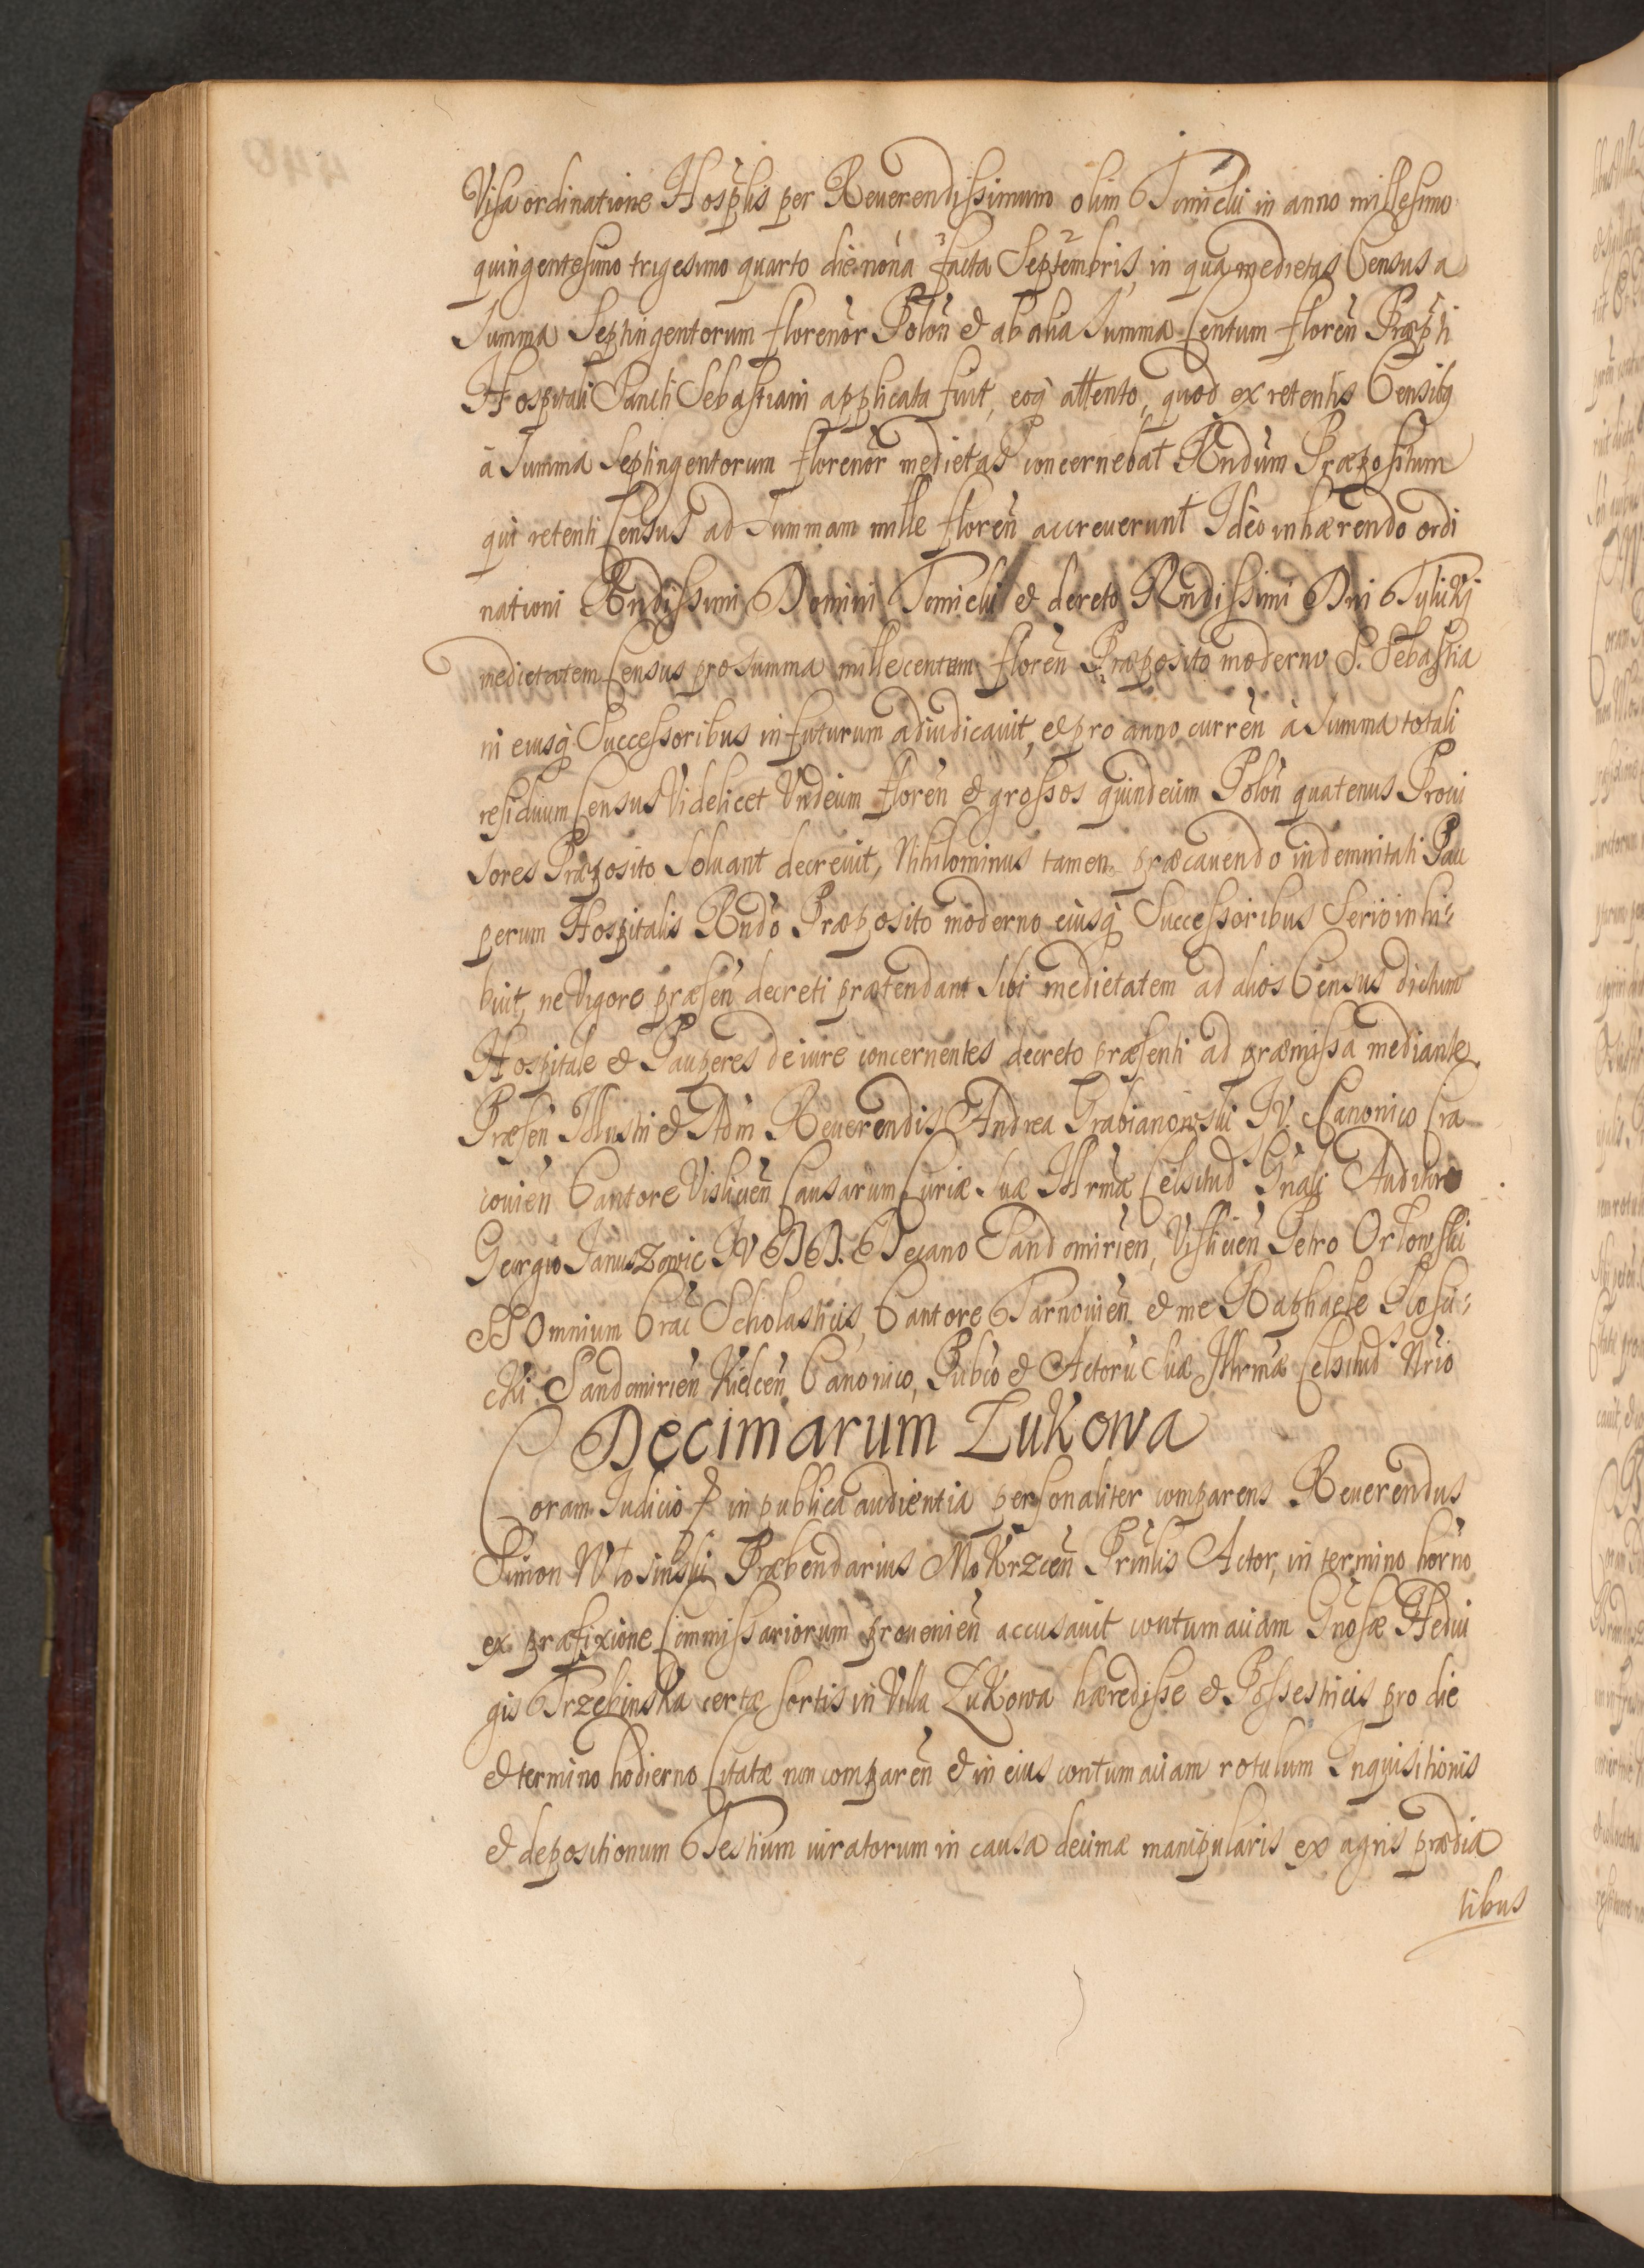 Visa ordinatione Hosplis per Reuerendissimum olim Tomicki in anno millesimo
quingentesimo trigesimo quarto die nona facta Septembris, in qua medietas Census a
Summa Septingentorum florenor Polon et ab alia Summa Centum floren Præpti
Hospitali Sancti Sebastiani applicata fuit, eoq attento, quod ex retentis Censibq
à Summa Septingentorum florenor medietas concernebat Rndum Præpositum
qui retenti Census ad Summam mille floren accreuerunt Ideo inhærendo ordi
nationi Rndissimi Domini Tomicki et decreto Rndissimi Dni Tylickj
medietatem Census pro Summa mille centum floren Præposito moderno S. Sebastia
ni eiusq Successoribus in futurum adiudicauit, et pro anno curren à Summa totali
residuum Census Videlicet Vndecim floren et grossos quindecim Polon quatenus Proui
sores Præposito Soluant decreuit, Nihilominus tamen præcauendo indemnitati Pau
perum Hospitalis Rndo Præposito moderno eiusq Successoribus Serio inhi:
buit, ne Vigore præsen decreti prætendant Sibi medietatem ad alios Census dictum
Hospitale et Pauperes de iure concernentes decreto præsenti ad præmissa mediante
Præsen Illustri et Adm Reuerendis Andrea Grabianowski IV. Canonico Cra
couien Cantore Vislicien Causarum Curiæ Suæ Illrmæ Celsitud Gnali Auditore
Georgio Januszowic IV DD. Decano Sandomirien, Vislicien Petro Orłowski
SS Omnium Crac Scholasticis, Cantore Tarnouien et me Raphaele Płosci:
cki Sandomirien Kielcen Canonico, Pubco et Actoru Suæ Illrmæ Celsitud Nrio
Decimarum Zukowa
Coram Iudicio et in publica audientia personaliter comparens Reuerendus
Simon Włosinski Præbendarius Mokrzcen Prinlis Actor, in termino horno
ex præfixione Commissariorum prouenien accusauit contumaciam Gnosæ Hedui
gis Trzebinska certæ sortis in Villa Zukowa hæredisse et Possestricis pro die
et termino hodierno Citatæ non comparen et in eius contumaciam rotulum Inquisitionis
et depositionum Testium iuratorum in causa decimæ manipularis ex agris prædia
libus